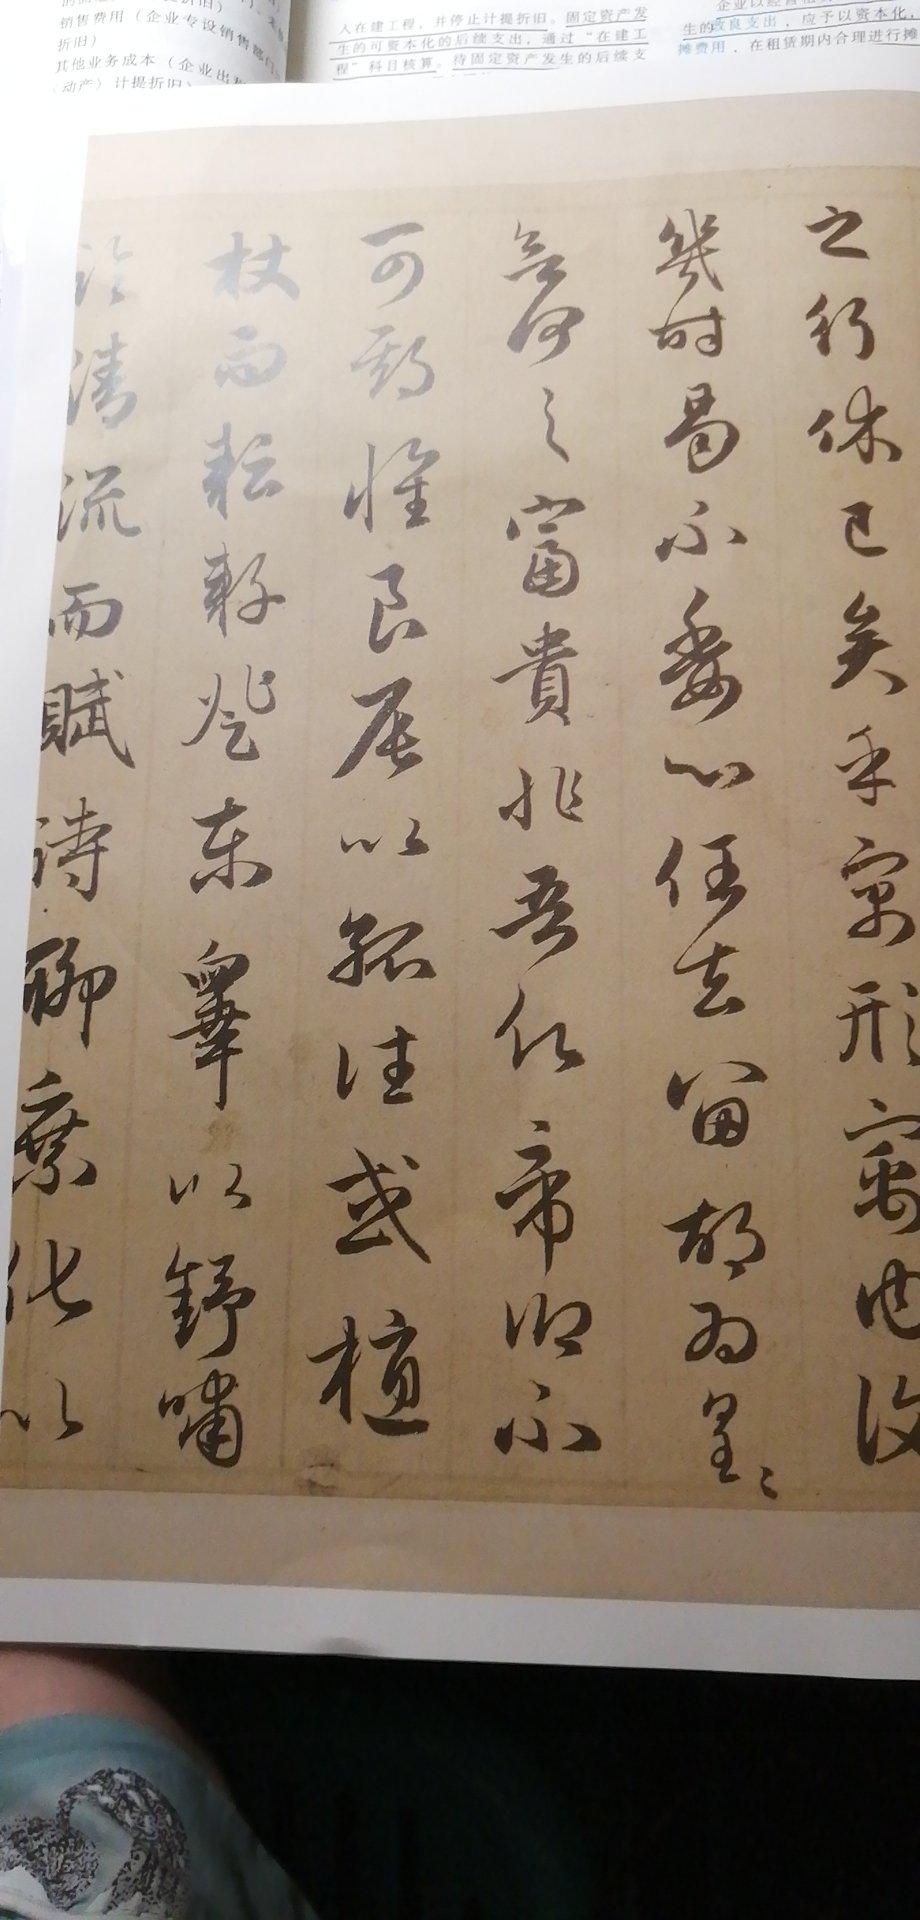 销售费用（企业专设销售部门
折旧）
其他业务成本（企业出
动产）计提折旧）
人在建工程，并停止计提折旧。固定资产发
生的可资本化的后续支出，通过“在建工
程”科目核算。待固定资产发生的后续支
企业以经营租
生的改良支出，应予以资本化，
摊费用，在租赁期内合理进行摊
之行休已矣乎寓形宇内復
幾時曷不委心任去留胡為皇〻
欲何之富貴非吾願帝鄉不
可期懷良辰以孤往或植
杖而耘耔登東皋以舒嘯
臨清流而賦詩聊乘化以